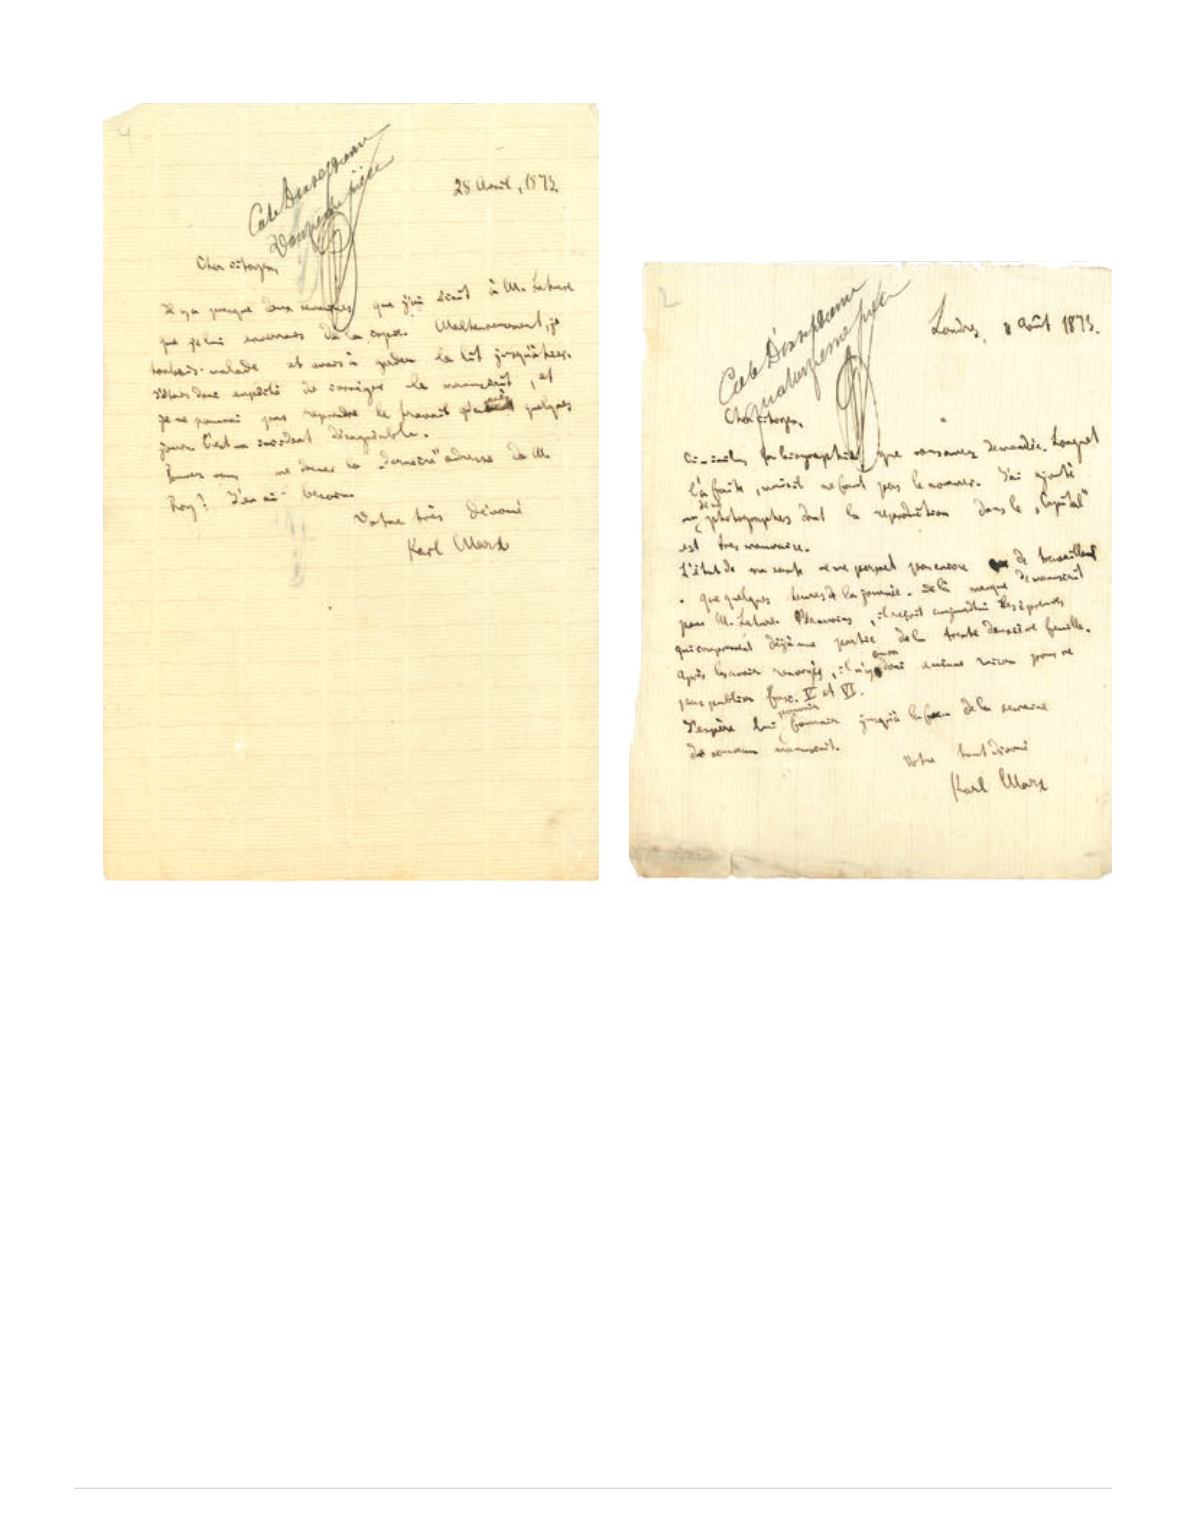 4
Cote Dixseptieme
Douzième pièce
28 Avril, 1873.
Cher citoyen,
Il y a quelque deux semaines que j'ai écrit à M. Lahure
que je lui enverrais de la copie. Malheureusement, je
tombais malade et avais à garder le lit jusqu'à hier.
J'étais donc empêché de corriger le manuscrit, et
je ne pourrai pas reprendre le travail quelques
jours. C'est un incident désagréable.
Pouvez vous me donner la „dernière" adresse de M.
Roy? J'en ai besoin.
Votre très dévoué
Karl Marx
2
Cote Dixseptieme
quatorzieme pièce
Londres, 9 Août 1873.
Cher citoyen,
Ci-inclus la biographie que vous avez demandée. Longuet
l'a faite, mais il ne faut pas le nommer. J'ai ajouté
deux
photographes dont la reproduction dans le „Capital"
est très mauvaise.
L'état de ma santé ne me permet pas encore de travailler
que quelques heures de la journée. De là manque de manuscrit
pour M. Lahure. Néanmoins, il reçoit aujourd'hui les épreuves
qui comprennent déjà une partie de la trente deuxième feuille.
Après les avoir renvoyés, il n'y aura donc aucune raison pour ne
pas publier fasc. V et VI.
J'espère lui pouvoir fournir jusqu'à la fin de la semaine
de nouveau manuscrit.
Votre tout dévoué
Karl Marx